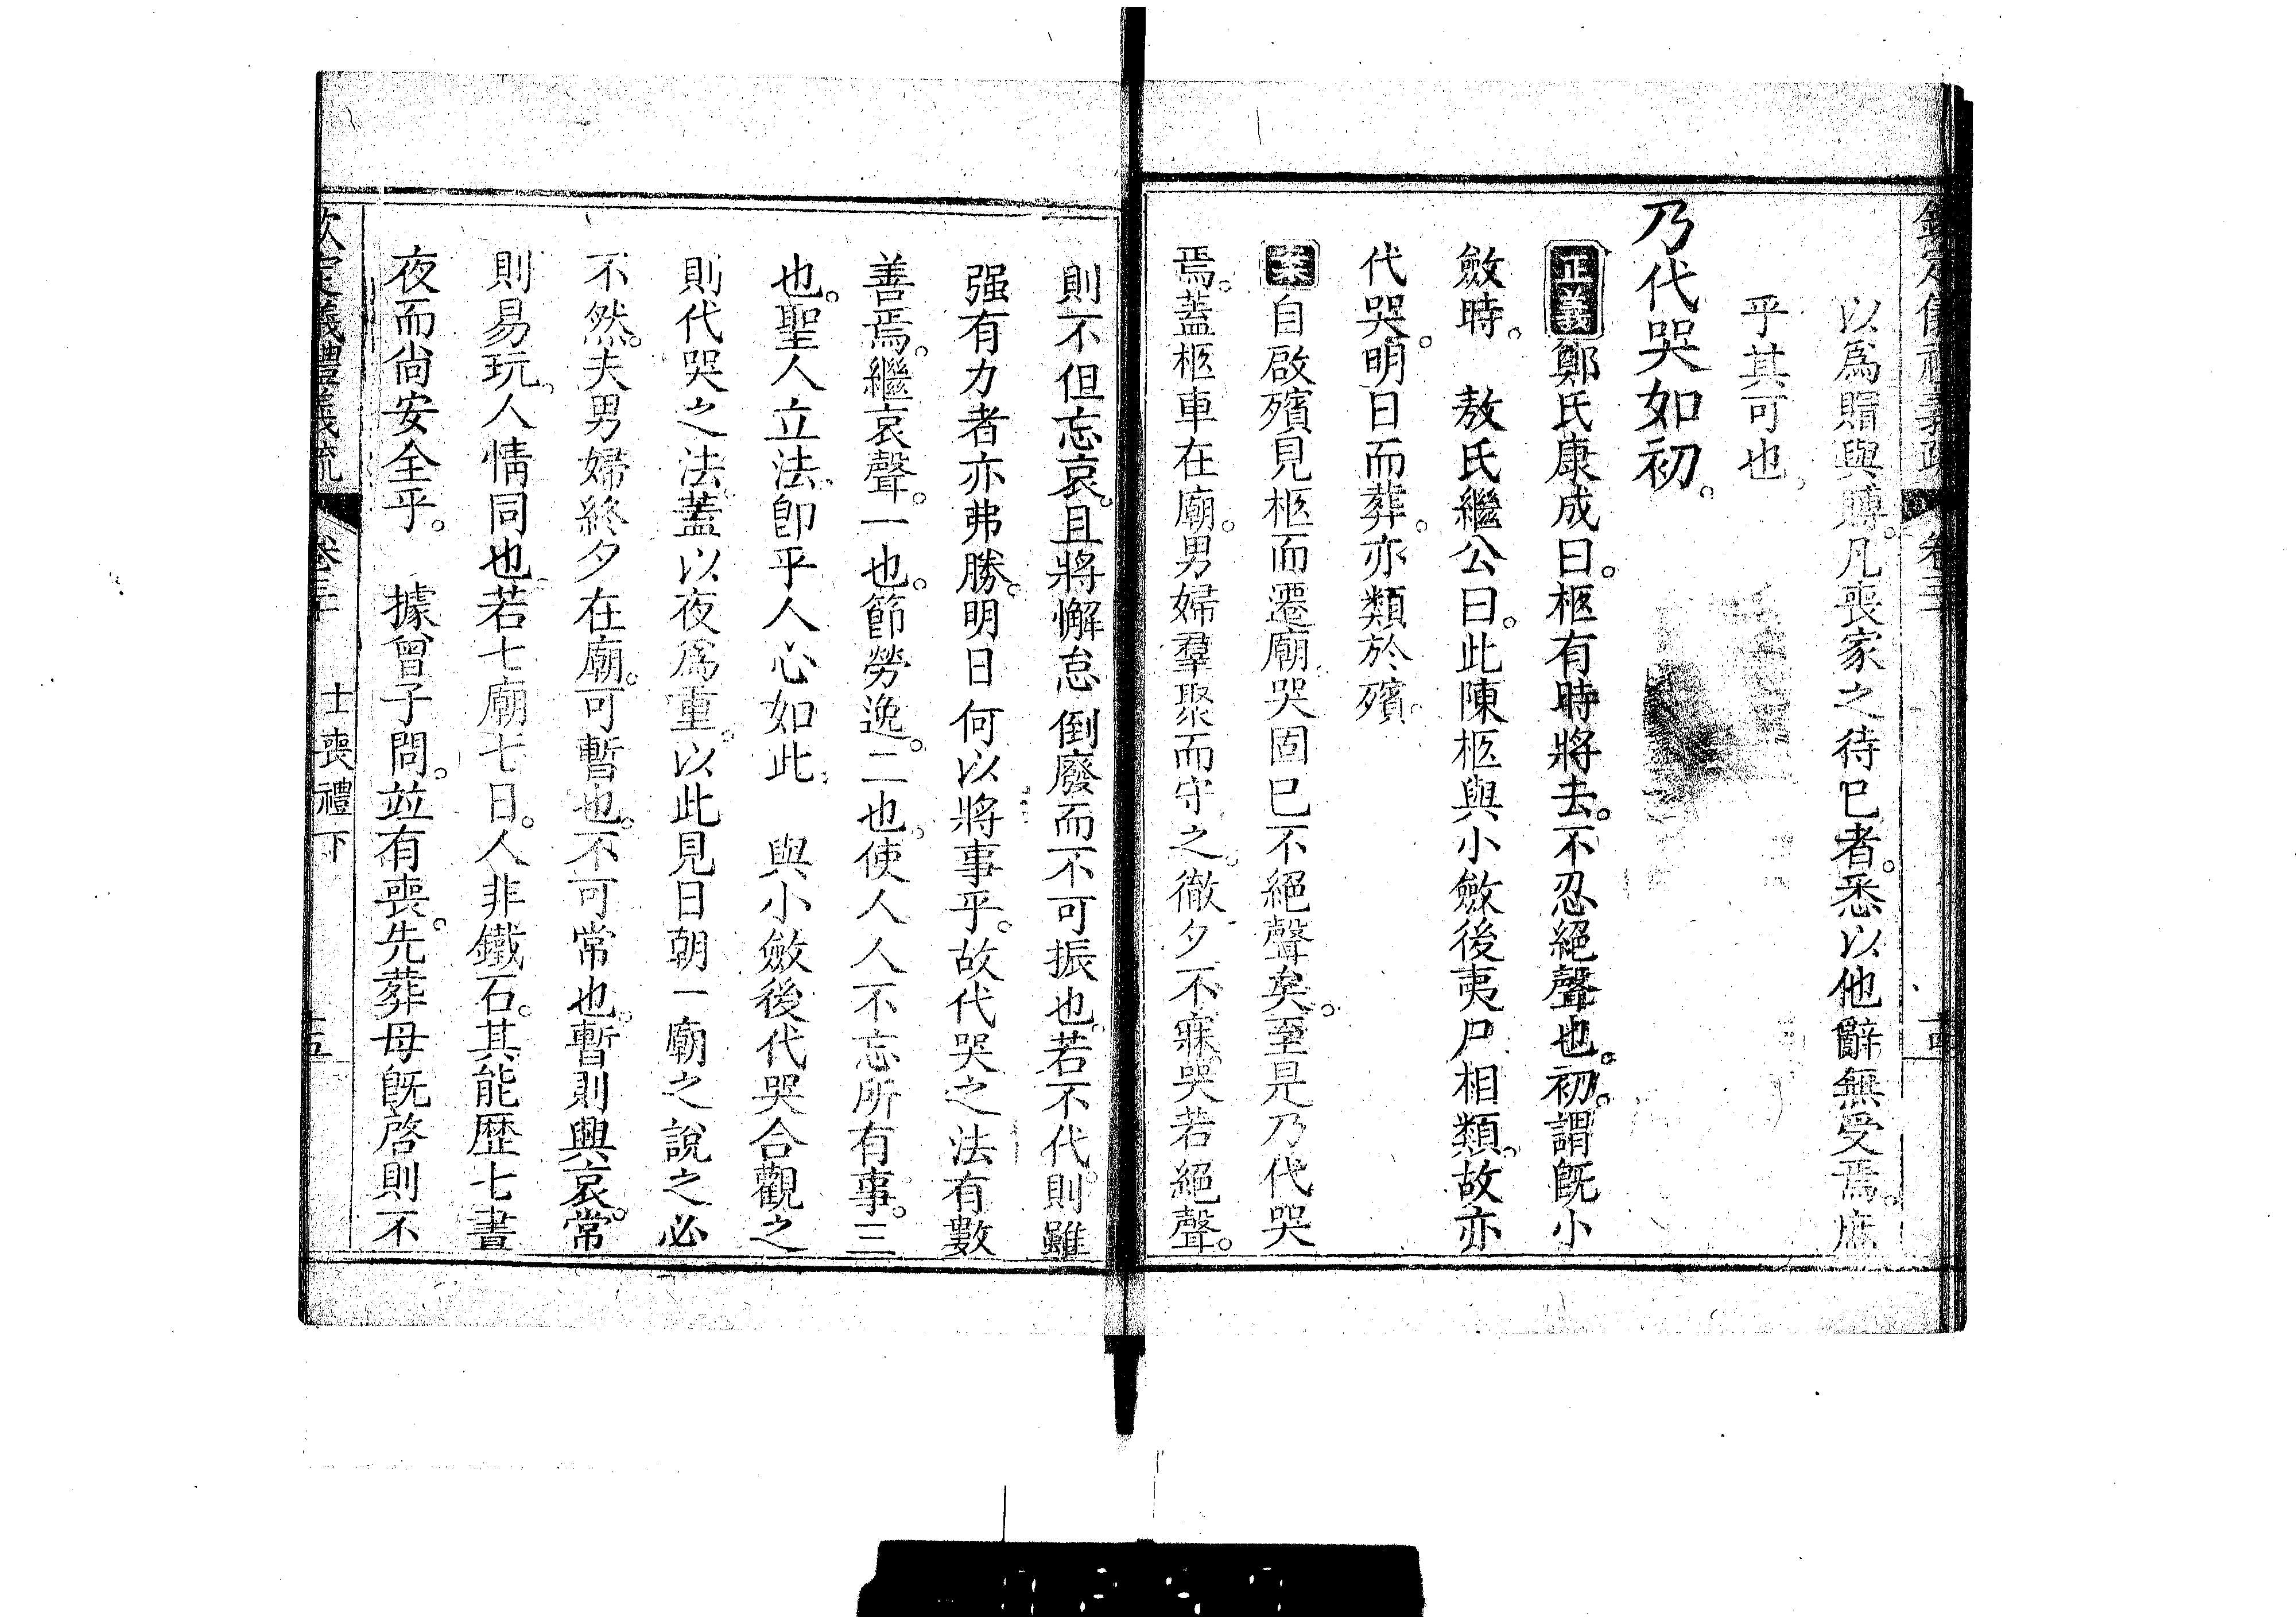 欽定儀禮義疏 卷三 
以爲賵與賻。凡喪家之待已者。悉以他辭無受焉。庶
乎其可也。
乃代哭如初。
正義鄭氏康成曰。柩有時將去。不忍絕聲也。初。謂旣小
斂時。 敖氏繼公曰。此陳柩與小斂後夷尸相類。故亦
代哭。明日而葬。亦類於殯。
案自啟殯見柩而遷廟。哭固已不絕聲矣。至是乃代哭
焉。蓋柩車在廟。男婦羣聚而守之。徹夕不寐。哭若絕聲。
則不但忘哀。且將懈怠倒廢而不可振也。若不代。則雖
强有力者亦弗勝。明日何以將事乎。故代哭之法有數
善焉。繼哀聲。一也。節勞逸。二也。使人人不忘所有事。三
也。聖人立法。卽乎人心如此。 與小斂後代哭合觀之
則代哭之法。蓋以夜爲重。以此見日朝一廟之說之必
不然。夫男婦終夕在廟。可暫也。不可常也。暫則興哀。常
則易玩。人情同也。若七廟七日。人非鐵石。其能歷七晝
夜而尙安全乎。 據曾子問。並有喪。先葬母旣啓則不
欽定儀禮義疏 卷三十 士喪禮下 十五